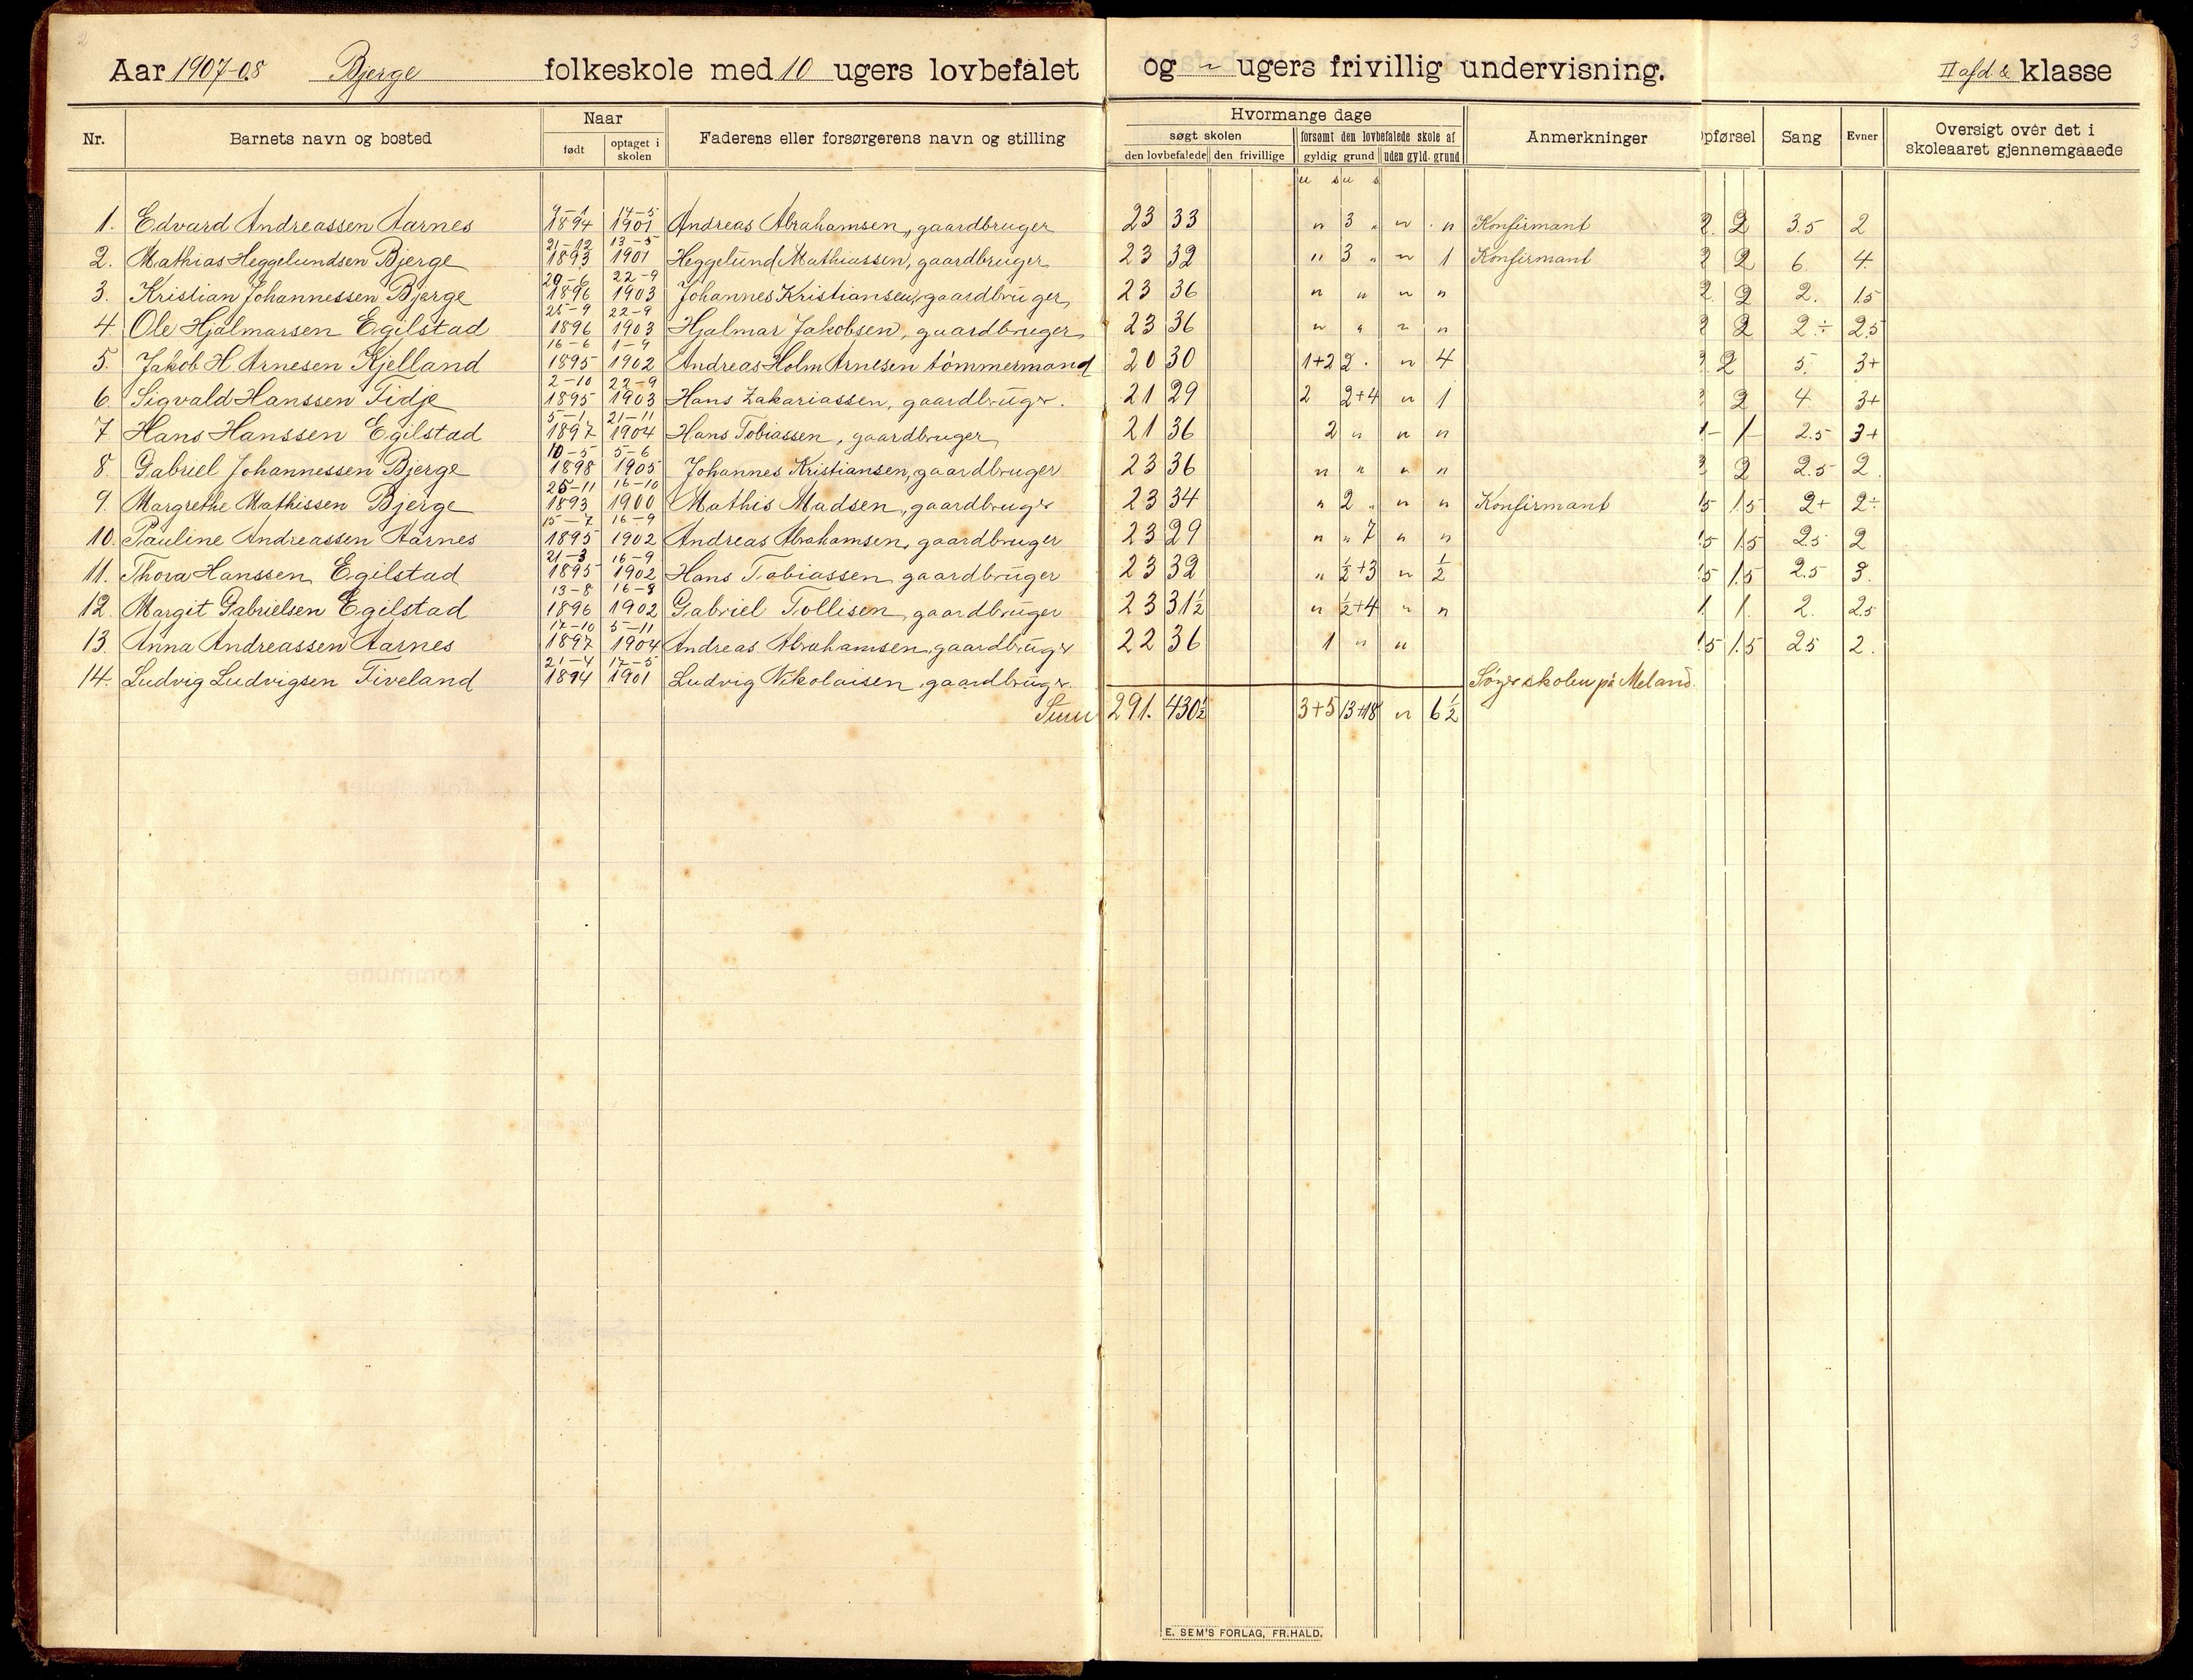 Aar 1907-08 Bjerge folkeskole med 10 ugers lovbefalet og " ugers frivillig undervisning. II afd. & klasse
Nr. Barnets navn og bosted Naar født optaget i skolen Faderens eller forsørgerens navn og stilling Hvormange dage søgt skolen den lovbefalede den frivillige forsømt den lovbefalede skole af gyldig grund uden gyld. grund Anmerkninger pførsel Sang Evner Oversigt over det i skoleaaret gjennemgaaede
u s u s
1. Edvard Andreassen Aarnes 9-1 1894 14-5 1901 Andreas Abrahamsen, gaardbruger 23 33 " 3 " " " Konfirmant 2. 2 3.5 2
2. Mathias Heggelundsen Bjerge 21-12 1893 13-5 1901 Heggelund Mathiassen, gaardbruger 23 32 " 3 " " 1 Konfirmant 2 2 6. 4.
3. Kristian Johannessen Bjerge 29-6 1896 22-9 1903 Johannes Kristiansen, gaardbruger 23 36 " " " " 2. 2 2. 1.5
4. Ole Hjalmarsen Egilstad 25-9 1896 22-9 1903 Hjalmar Jakobsen, gaardbruger 23 36 " " " " 2 2 2÷ 2.5
5. Jakob H. Arnesen Kjelland 16-6 1895 1-9 1902 Andreas Holm Arnesen tömmermand 20 30 1+2 2 . " 4 2 2 5. 3+
6. Sigvald Hanssen Tidje 2-10 1895 22-9 1903 Hans Zakariassen, gaardbruger. 21 29 2 2+4 " 1 2 2 4. 3+
7 Hans Hanssen Egilstad 5-1 1897 21-11 1904 Hans Tobiassen, gaardbruger 21 36 2 " " " 1- 1- 2.5 3+
8. Gabriel Johannessen Bjerge 10-5 1898 5-6 1905 Johannes Kristiansen, gaardbruger 23 36 " " " " 2 2 2.5 2.
9. Margrethe Mathissen Bjerge 25-11 1893 16-10 1900 Mathis Madsen, gaardbruger 23 34 " 2 " " " Konfirmant 15 1.5 2+ 2÷
10. Pauline Andreassen Aarnes 15-7 1895 16-9 1902 Andreas Abrahamsen, gaardbruger 23 29 " " 7 " " 15 1.5 2.5 2
11. Thora Hanssen Egilstad 21-3 1895 16-9 1902 Hans Tobiassen gaardbruger 23 32 " ½+3 " ½ 15 1.5 2.5 3.
12. Margit Gabrielsen Egilstad 13-8 1896 16-9 1902 Gabriel Tollisen, gaardbruger 23 31½ " ½+4 " " 1. 1. 2. 2.5
13. Anna Andreassen Aarnes 17-10 1897 5-11 1904 Andreas Abrahamsen, gaardbruger 22 36 1 " " 15 1.5 25 2.
14. Ludvig Ludvigsen Tiveland 21-4 1894 17-5 1901 Ludvig Nikolaisen, gaardbruger. Söger skolen på Meland.
Sum 291. 430½ 3+5 13+18 " 6½
E. SEM'S FORLAG, FR.HALD.